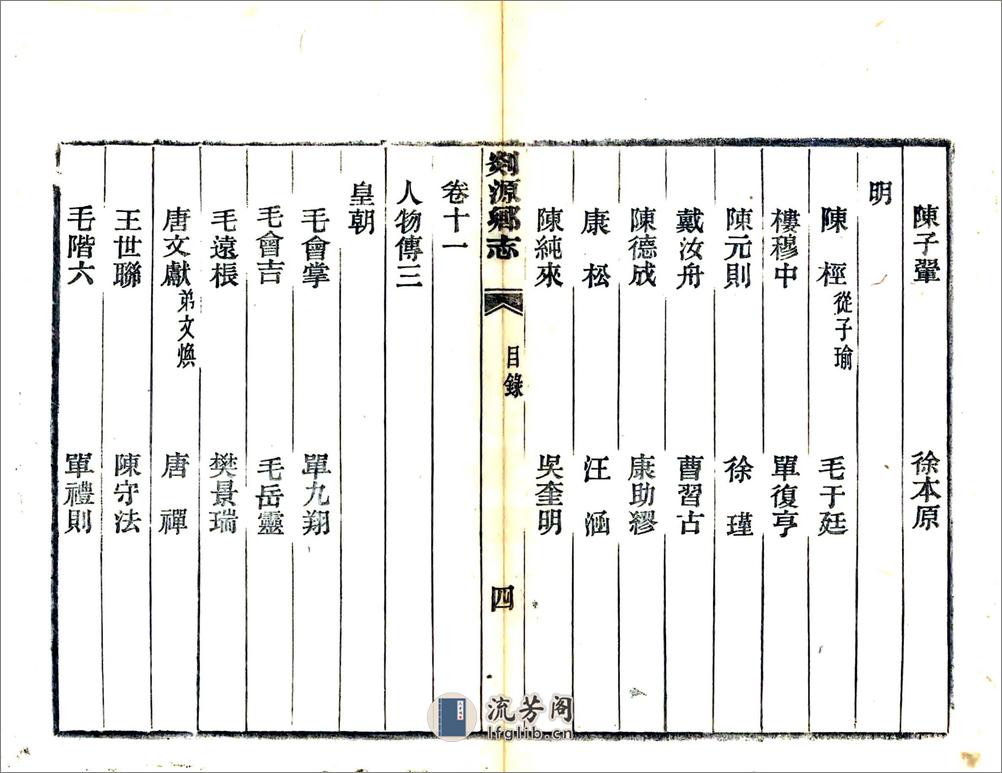 陳子鞏 徐本原
明
陳 桱從子瑜 毛于廷
樓穆中 單復亨
陳元則 徐 瑾
戴汝舟 曹習古
陳德成 康助繆
康 松 汪 涵
陳純來 吳奎明
剡源鄉志 目錄 四
卷十一
人物傳三
皇朝
毛會掌 單九翔
毛會吉 毛岳靈
毛遠棖 樊景瑞
唐文獻弟文煥 唐 禪
王世聯 陳守法
毛階六 單禮則
流芳阁
lfglib.cn